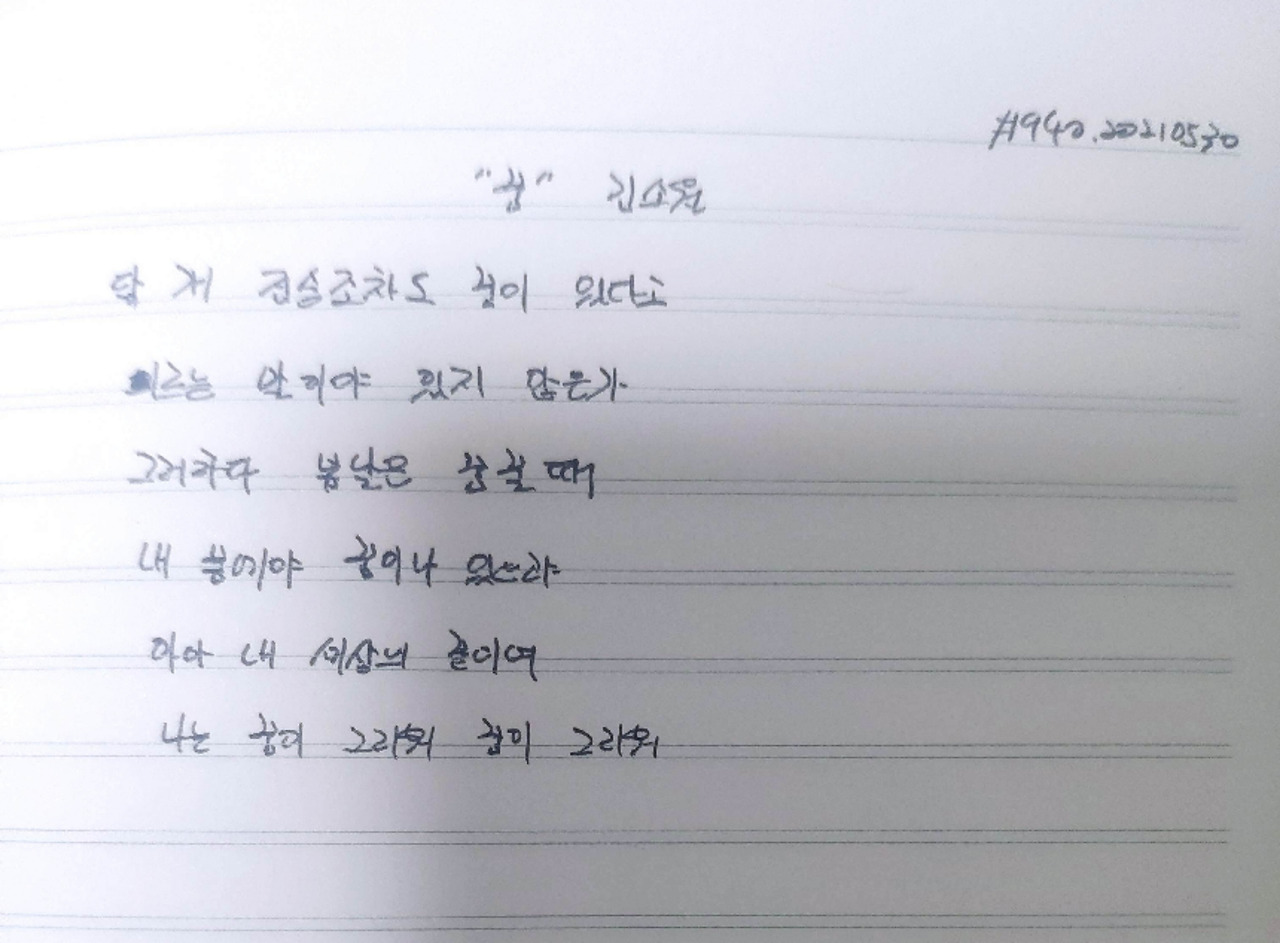 #940.20210530
"꿈" 김소월
닭 개 짐승조차도 꿈이 있다고
이르는 말이야 있지 않은가
그러하다 봄날은 꿈꿀 때
내 몸에야 꿈이나 있으랴
아아 내 세상의 끝이여
나는 꿈이 그리워 꿈이 그리워